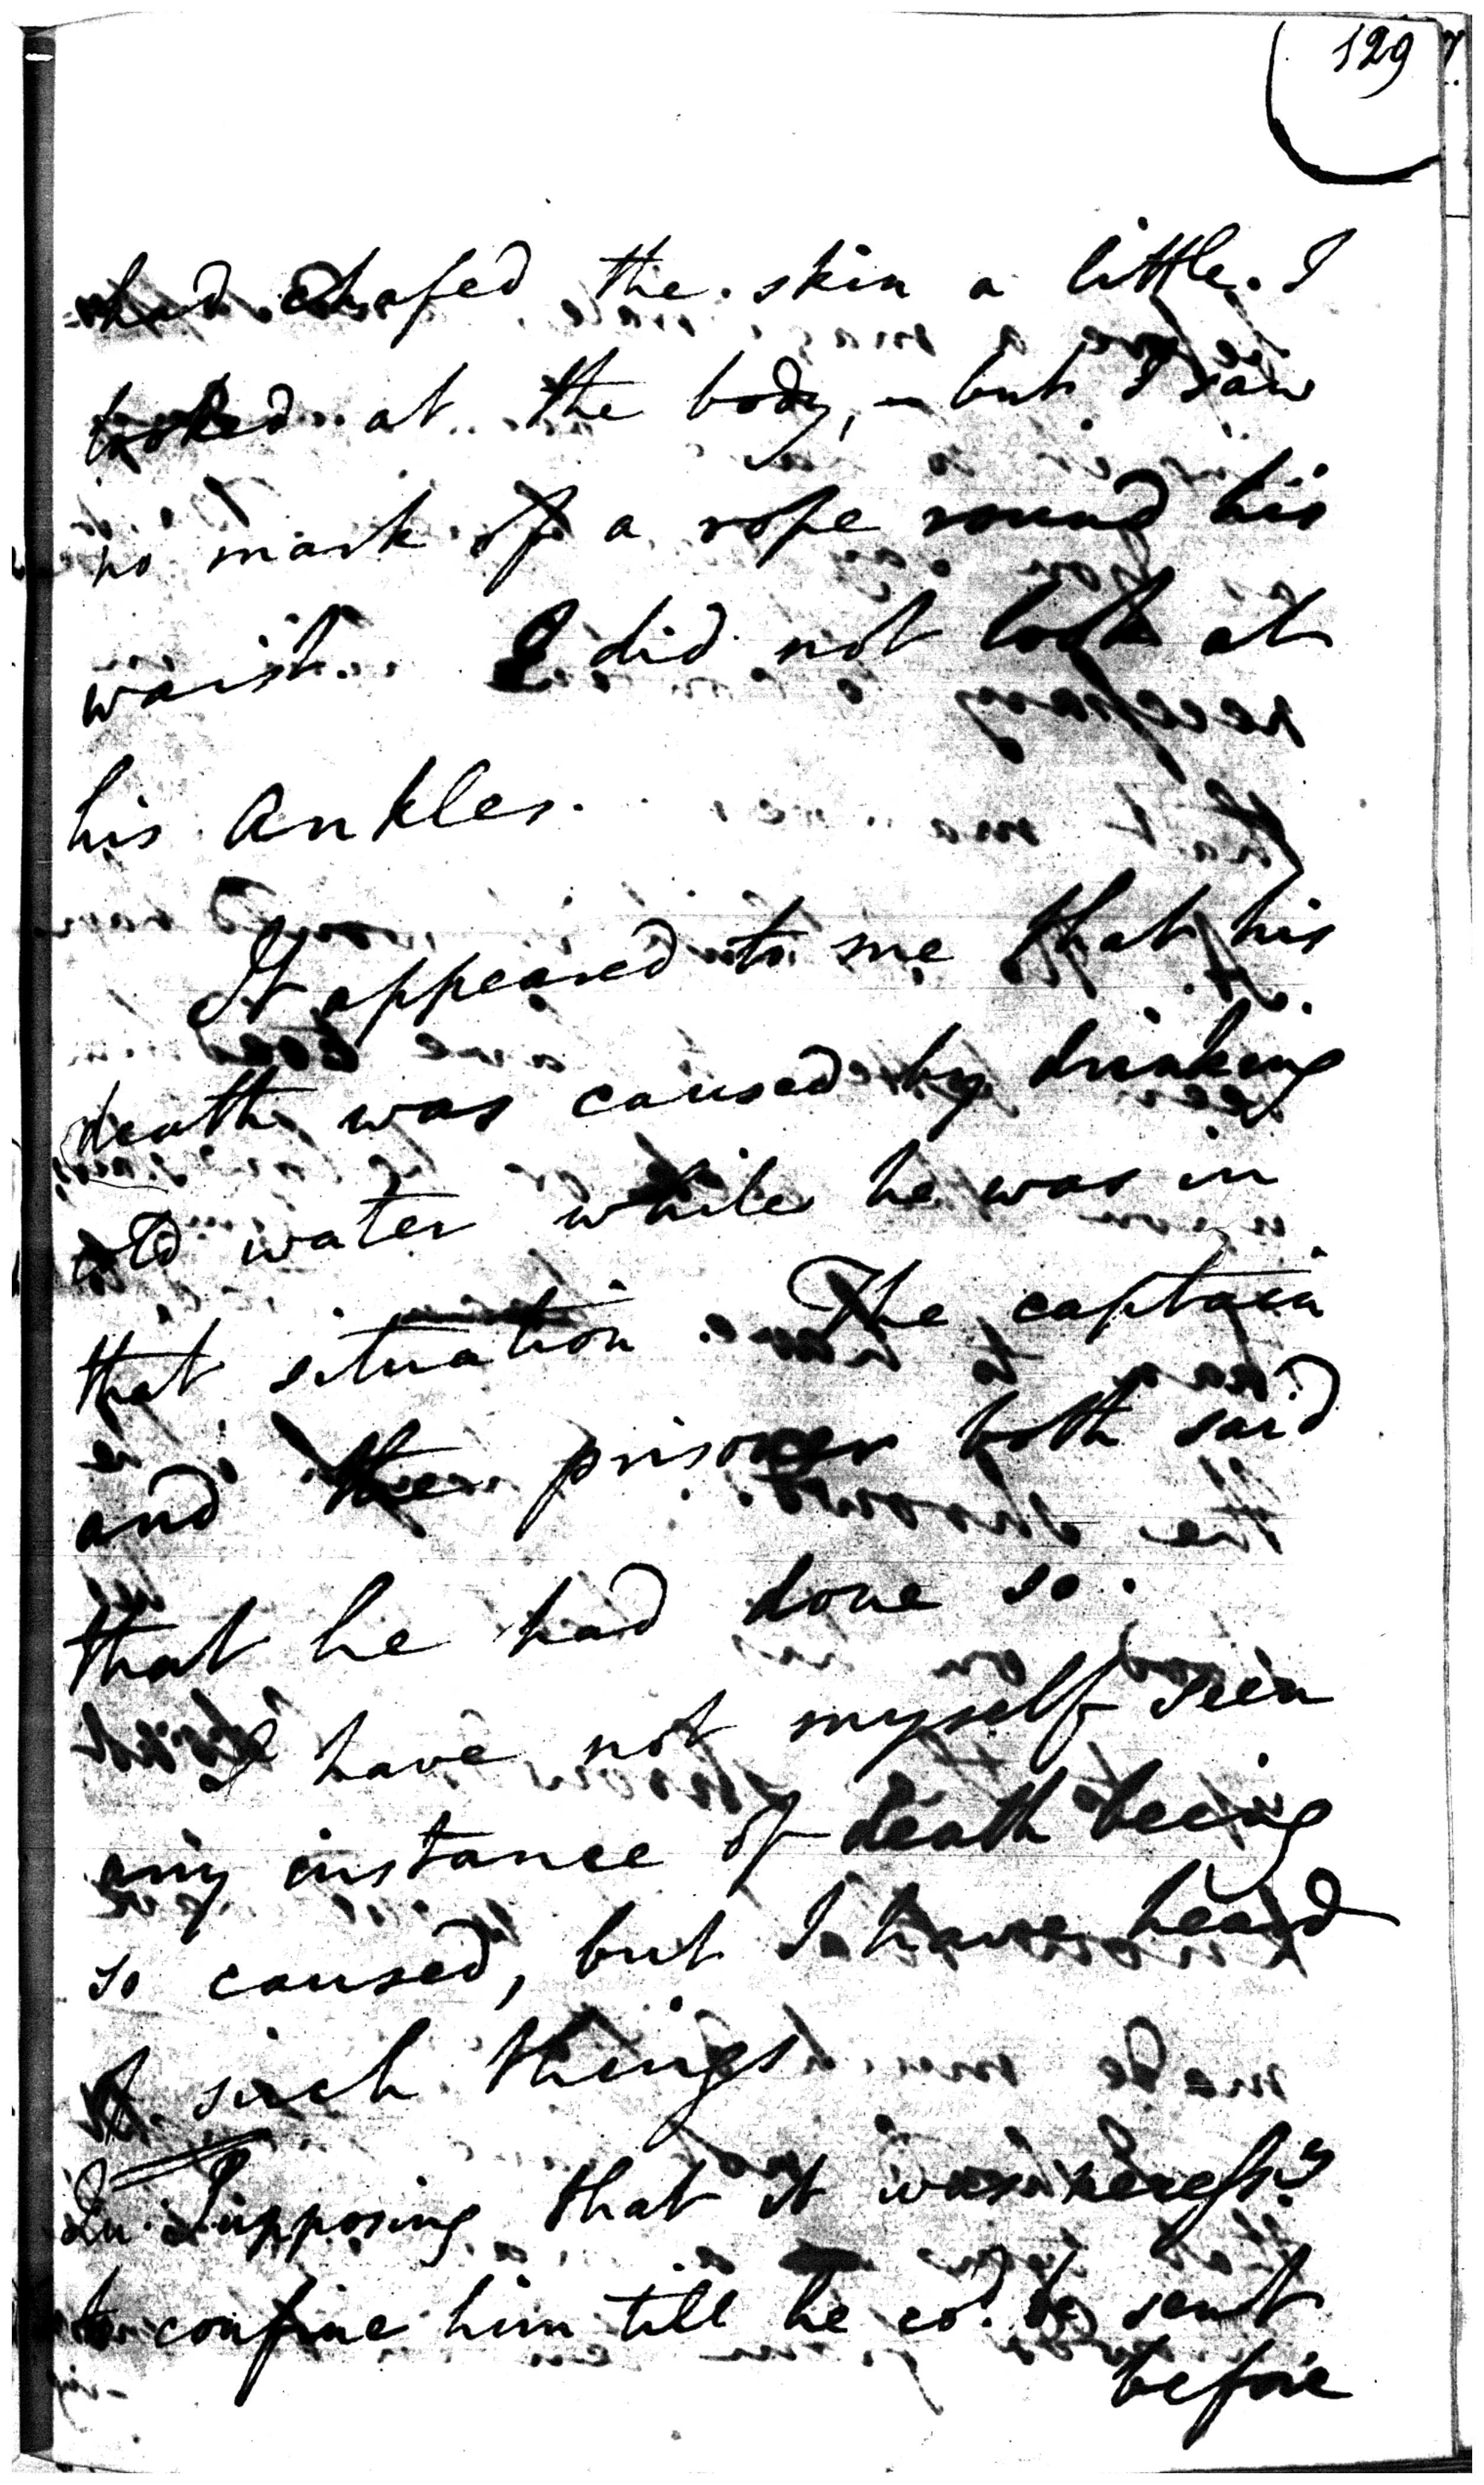 129
had chafed the skin a little. I
looked at the body, - but I saw
no mark of a rope round his
waist. I did not look at
his ankles.
It appeared to me that his
death was caused by drinking
cold water while he was in
that situation. The captain
and the prisoner both said
that he had done so.
I have not myself seen
any instance of death being
so caused, but I have heard
of such things
Qu. Supposing that it was necessy
to confine him till he cod. be sent
before